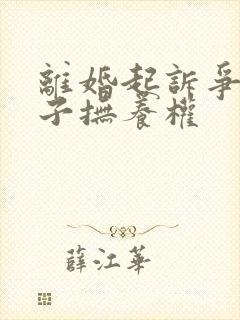 離婚起訴爭
子撫養權
薛江華